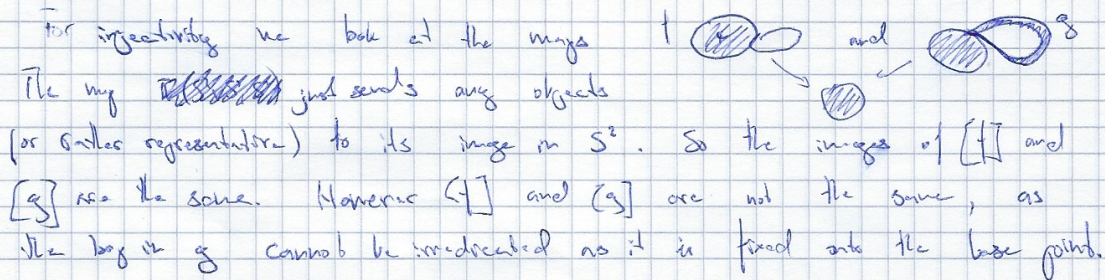 For injectivity we look at the maps f and g
The map just sends any objects
(or rather representative) to its image in S². So the images of [f] and
[g] are the same. However [f] and [g] are not the same, as
the loop in g cannot be irradicated as it is fixed onto the base point.